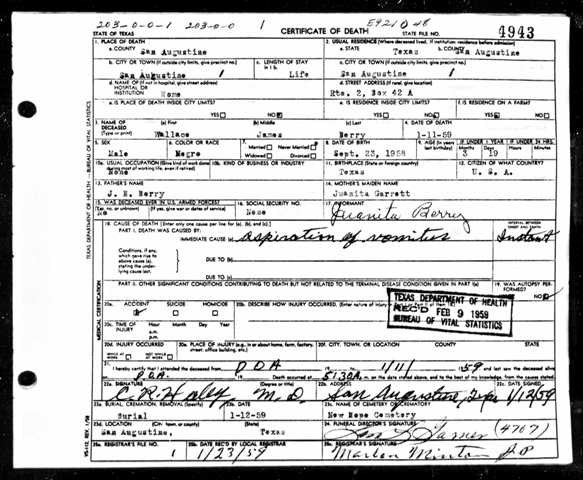 203-0-0-1 203-0-0 1 E921 0 48
STATE OF TEXAS CERTIFICATE OF DEATH STATE FILE NO. 4943
1. PLACE OF DEATH 2. USUAL RESIDENCE (Where deceased lived. If institution: residence before admission)
a. COUNTY San Augustine a. STATE Texas b. COUNTY San Augustine
b. CITY OR TOWN (If outside city limits, give precinct no.) c. LENGTH OF STAY in 1 b. c. CITY OR TOWN (If outside city limits, give precinct no.)
San Augustine Life San Augustine
d. NAME OF (If not in hospital, give street address) HOSPITAL OR INSTITUTION Home d. STREET ADDRESS (If rural, give location) Rts. 2, Box 42 A
e. IS PLACE OF DEATH INSIDE CITY LIMITS? YES NO e. IS RESIDENCE INSIDE CITY LIMITS? YES NO f. IS RESIDENCE ON A FARM? YES NO
3. NAME OF DECEASED (Type or print) (a) First (b) Middle (c) Last 4. DATE OF DEATH
Wallace James Berry 1-11-59
5. SEX 6. COLOR OR RACE 7. Married Never Married Widowed Divorced 8. DATE OF BIRTH 9. AGE (In years last birthday) IF UNDER 1 YEAR Months Days IF UNDER 24 HRS. Hours Minutes
Male Negro Sept. 23, 1958 3 19
10a. USUAL OCCUPATION (Give kind of work done most of working life, even if retired) 10b. KIND OF BUSINESS OR INDUSTRY 11. BIRTHPLACE (State or foreign country) 12. CITIZEN OF WHAT COUNTRY?
None Texas U. S. A.
13. FATHER'S NAME 14. MOTHER'S MAIDEN NAME
J. E. Berry Juanita Garrett
15. WAS DECEASED EVER IN U.S. ARMED FORCES? (Yes, no, or unknown) (If yes, give war or dates of service) 16. SOCIAL SECURITY NO. 17. INFORMANT
No None Juanita Berry
18. CAUSE OF DEATH (Enter only one cause per line for (a), (b), and (c).) INTERVAL BETWEEN ONSET AND DEATH
PART I. DEATH WAS CAUSED BY:
IMMEDIATE CAUSE (a) aspiration of vomitus Instant
Conditions, if any, which gave rise to above cause (a), stating the underlying cause last.
DUE TO (b)
DUE TO (c)
PART II. OTHER SIGNIFICANT CONDITIONS CONTRIBUTING TO DEATH BUT NOT RELATED TO THE TERMINAL DISEASE CONDITION GIVEN IN PART I (a) 19. WAS AUTOPSY PERFORMED? YES NO
20a. ACCIDENT SUICIDE HOMICIDE 20b. DESCRIBE HOW INJURY OCCURRED.
TEXAS DEPARTMENT OF HEALTH
REC'D FEB 9 1959
BUREAU OF VITAL STATISTICS
20c. TIME OF INJURY Hour Month Day Year a.m. p.m.
20d. INJURY OCCURRED WHILE AT WORK NOT WHILE AT WORK 20e. PLACE OF INJURY (e.g., in or about home, farm, factory, street, office building, etc.) 20f. CITY, TOWN, OR LOCATION COUNTY STATE
21. I hereby certify that I attended the deceased from DOA 1/11 1959 and last saw the deceased alive
on DOA. Death occurred at 5:30 A. m. on the date stated above, and to the best of my knowledge, from the causes stated.
22a. SIGNATURE (Degree or title) 22b. ADDRESS 22c. DATE SIGNED
C.R. Haley, M.D. San Augustine, Texas 1/12/59
23a. BURIAL, CREMATION, REMOVAL (Specify) 23b. DATE 23c. NAME OF CEMETERY OR CREMATORY
Burial 1-12-59 New Hope Cemetery
23d. LOCATION (City, town, or county) (State) 24. FUNERAL DIRECTOR'S SIGNATURE
San Augustine, Texas Garner (4707)
25a. REGISTRAR'S FILE NO. 25b. DATE REC'D BY LOCAL REGISTRAR 25c. REGISTRAR'S SIGNATURE
1 1/23/59 Marlon Minton J.P.
TEXAS DEPARTMENT OF HEALTH — BUREAU OF VITAL STATISTICS
MEDICAL CERTIFICATION
VS-112, REV. 1/58